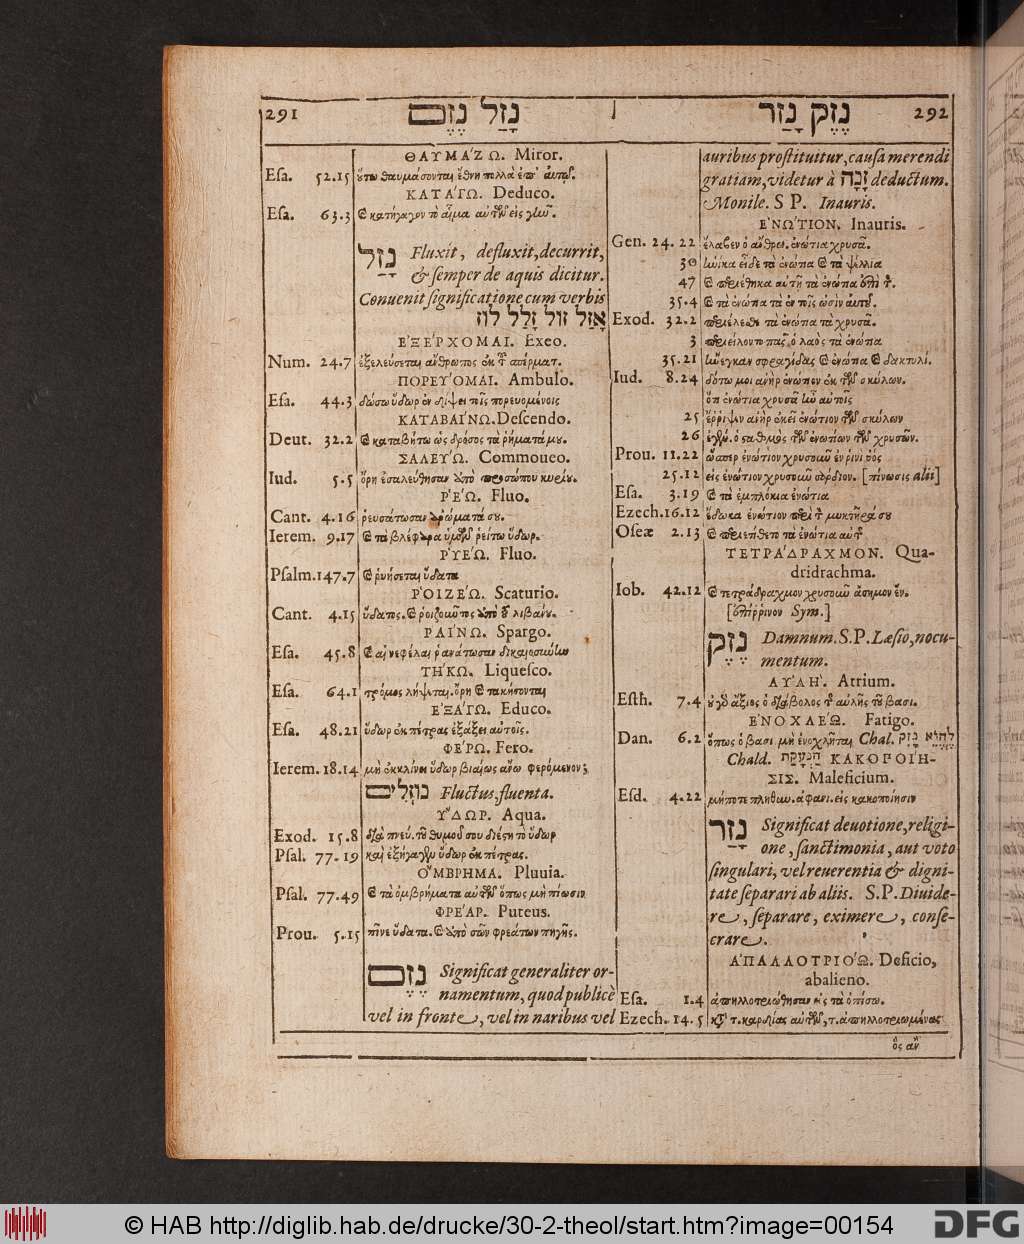 291 נָזַל נֶזֶם
נֶזֶק נָזַר 292
ΘΑΥΜΑΖΩ. Miror.
Esa. 52.15 οὕτω θαυμάσονται ἔθνη πολλὰ ἐπ' αὐτῷ.
ΚΑΤΑΓΩ. Deduco.
Esa. 63.3 ϗ κατήγαγον τὸ αἷμα αὐτῶν εἰς γῆν.
נָזַל Fluxit, defluxit, decurrit,
& semper de aquis dicitur.
Conuenit significatione cum verbis
אָזַל זול זָלַל לוז
ἘΞΈΡΧΟΜΑΙ. Exeo.
Num. 24.7 ἐξελεύσεται ἄνθρωπος ἐκ τοῦ σπέρματ.
ΠΟΡΕΎΟΜΑΙ. Ambulo.
Esa. 44.3 δώσω ὕδωρ ἐν δίψει τοῖς πορευομένοις
ΚΑΤΑΒΑΊΝΩ. Descendo.
Deut. 32.2 ϗ καταβήτω ὡς δρόσος τὰ ῥήματά μου.
ΣΑΛΕΎΩ. Commoueo.
Iud. 5.5 ὄρη ἐσαλεύθησαν ἀπὸ προσώπου κυρίου.
ῬΈΩ. Fluo.
Cant. 4.16 ῥευσάτωσαν ἀρώματά σου.
Ierem. 9.17 ϗ τὰ βλέφαρα ὑμῶν ῥείτω ὕδωρ.
ῬΥΈΩ. Fluo.
Psalm. 147.7 ϗ ῥυήσεται ὕδατα
ῬΟΙΖΈΩ. Scaturio.
Cant. 4.15 ὕδατος. ϗ ῥοιζοῦντος ἀπὸ τοῦ λιβάνου.
ῬΑΊΝΩ. Spargo.
Esa. 45.8 ϗ αἱ νεφέλαι ῥανάτωσαν δικαιοσύνην
ΤΉΚΩ. Liquesco.
Esa. 64.1 τρόμος λήψεται. ὄρη ϗ τακήσονται
ἘΞΆΓΩ. Educo.
Esa. 48.21 ὕδωρ ἐκ πέτρας ἐξάξει αὐτοῖς.
ΦΈΡΩ. Fero.
Ierem. 18.14 μὴ ἐκκλίνει ὕδωρ βιαίως ἄνω φερόμενον;
נוזְלִים Fluctus, fluenta.
ὝΔΩΡ. Aqua.
Exod. 15.8 διὰ πνεύ. τοῦ θυμοῦ σου διέστη τὸ ὕδωρ
Psal. 77.19 καὶ ἐξήγαγεν ὕδωρ ἐκ πέτρας.
ὌΜΒΡΗΜΑ. Pluuia.
Psal. 77.49 ϗ τὰ ὀμβρήματα αὐτῶν ὅπως μὴ πίωσιν
ΦΡΈΑΡ. Puteus.
Prou. 5.15 πῖνε ὕδατα. ϗ ἀπὸ σῶν φρεάτων πηγῆς.
נֶזֶם Significat generaliter or-
namentum, quod publicè
vel in fronte, vel in naribus vel
auribus prostituitur, causa merendi
gratiam, videtur à זָכָה deductum.
Monile. S P. Inauris.
ἘΝΏΤΙΟΝ. Inauris.
Gen. 24.22 ἔλαβεν ὁ ἄνθρω. ἐνώτια χρυσᾶ.
30 ἡνίκα εἶδε τὰ ἐνώτια ϗ τὰ ψέλλια
47 ϗ περιέθηκα αὐτῇ τὰ ἐνώτια
35.4 ϗ τὰ ἐνώτια τὰ ἐν τοῖς ὠσὶν αὐτῶν.
Exod. 32.2 περιέλεσθε τὰ ἐνώτια τὰ χρυσᾶ.
3 περιείλοντο πᾶς ὁ λαὸς τὰ ἐνώτια
35.21 ἤνεγκαν σφραγίδας ϗ ἐνώτια ϗ δακτυλί.
Iud. 8.24 δότω μοι ἀνὴρ ἐνώτιον ἐκ τῶν σκύλων.
ὅτι ἐνώτια χρυσᾶ ἦν αὐτοῖς
25 ἔρριψεν ἀνὴρ ἐκεῖ ἐνώτιον τῶν σκύλων
26 ἐγένε. ὁ σταθμὸς τῶν ἐνωτίων τῶν χρυσῶν.
Prou. 11.22 ὥσπερ ἐνώτιον χρυσοῦν ἐν ῥινὶ ὑὸς
25.12 εἰς ἐνώτιον χρυσοῦν σάρδιον. [πίνωσις alii]
Esa. 3.19 ϗ τὰ ἐμπλόκια ἐνώτια
Ezech. 16.12 ἔδωκα ἐνώτιον περὶ τὸν μυκτῆρά σου
Oseæ 2.13 ϗ περιετίθετο τὰ ἐνώτια αὐτῆς
ΤΕΤΡΆΔΡΑΧΜΟΝ. Qua-
dridrachma.
Iob. 42.12 ϗ τετράδραχμον χρυσοῦν ἄσημον ἕν.
[ἐπίρρινον Sym.]
נֶזֶק Damnum. S.P. Læsio, nocu-
mentum.
ΑΥΛΉ. Atrium.
Esth. 7.4 οὐ γὰρ ἄξιος ὁ διάβολος τῆς αὐλῆς τοῦ βασι.
ἘΝΟΧΛΈΩ. Fatigo.
Dan. 6.2 ὅπως ὁ βασι. μὴ ἐνοχλῆται Chal. נָזִק
Chald. ΚΑΚΟΠΟΊΗ-
ΣΙΣ. Maleficium.
Esd. 4.22 μήποτε πληθυν. ἀφανι. εἰς κακοποίησιν
נָזַר Significat deuotione, religi-
one, sanctimonia, aut voto
singulari, vel reuerentia & digni-
tate separari ab aliis. S.P. Diuide-
re, separare, eximere, conse-
crare.
ἈΠΑΛΛΟΤΡΙΌΩ. Deficio,
abalieno.
Esa. 1.4 ἀπηλλοτριώθησαν εἰς τὰ ὀπίσω.
Ezech. 14.5 κατὰ τ. καρδίας αὐτῶν, τ. ἀπηλλοτριωμένας
ὃς ἂν
© HAB http://diglib.hab.de/drucke/30-2-theol/start.htm?image=00154
DFG